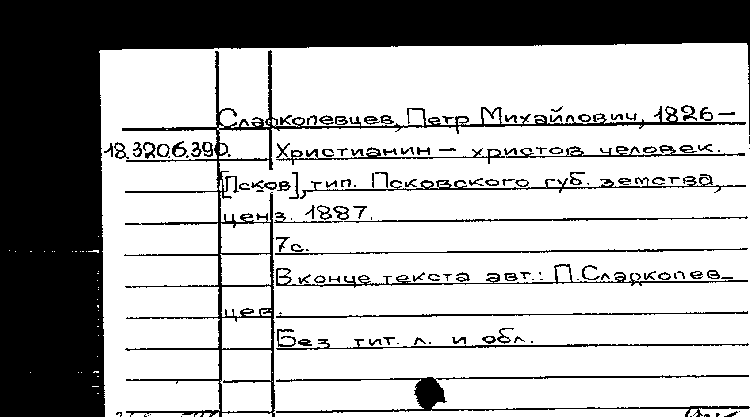 Сладкопевцев, Петр Михайлович, 1826—
18.3206.390. Христианин — христов человек.
[Псков], тип. Псковского губ. земства,
ценз. 1887.
7с.
В конце текста авт.: П.Сладкопев-
цев.
Без тит. л. и обл.